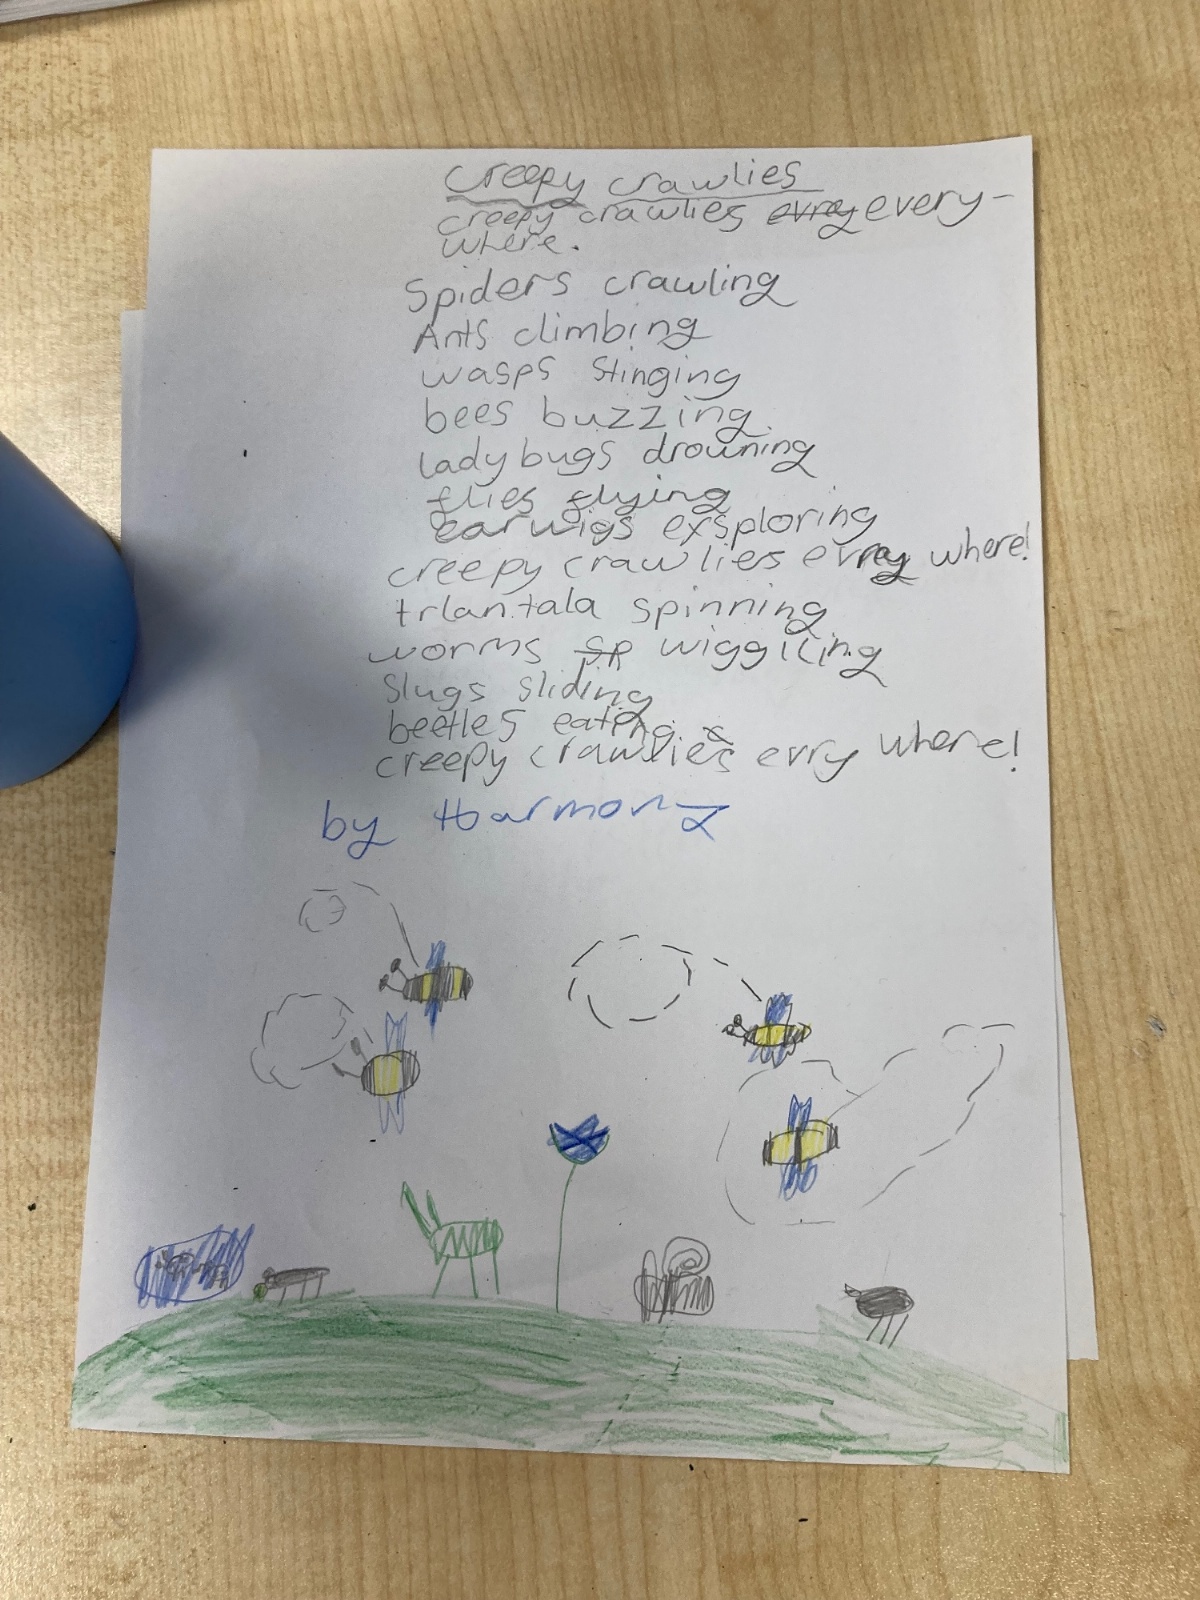 creepy crawlies
creepy crawlies evrey every-
where.
Spiders crawling
Ants climbing
wasps stinging
bees buzzing
ladybugs drowning
flies flying
earwigs exsploring
creepy crawlies evrey where!
trlantala spinning
worms sp wiggiling
Slugs sliding
beetles eating
creepy crawlies evry where!
by Harmony